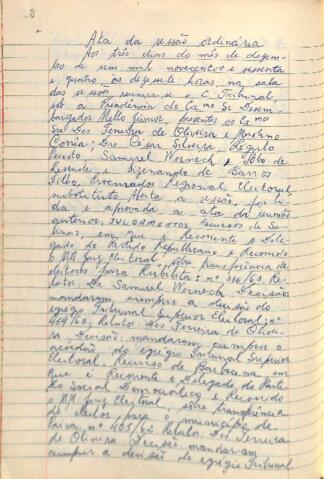 Ata da sessão ordinária
Aos três dias do mês de dezem-
bro de um mil novecentos e sessenta
e quatro, às dezesete horas, na sala
das sessões, reuniu-se o E. Tribunal,
sob a Presidência do Exmo Sr Desem-
bargador Mello Júnior presentes os Exmo
Srs Des Ferreira de Oliveira e
Corrêa; Drs César Silveira, Régulo
Peixoto Samuel Werneck,
Resende e Sizenando de Barros
Filho, Procurador Regional Eleitoral
substituto Aberta a sessão, foi li-
da e aprovada a ata da reunião
anterior. JULGAMENTOS Recursos de Sa-
linas, em que é Recorrente o Dele-
gado do Partido Republicano e Recorrido
o MM Juiz Eleitoral, sobre transferência de
eleitores para Rubelita: nº 386/63. Re-
lator: Dr Samuel Werneck Decisão:
mandaram cumprir a decisão do
egrégio Tribunal Superior Eleitoral; nº
464/63, Relator Des Ferreira de Olivei-
ra Decisão: mandaram cumprir o
acórdão do egrégio Tribunal Superior
Eleitoral. Recurso de Barbacena em
que é Recorrente o Delegado do Parti-
do Social Democrático e Recorrido
o MM Juiz Eleitoral, sobre transferência
de eleitor para o município de
nº 405/62 Relator: Des Ferreira
de Oliveira Decisão: mandaram
cumprir a decisão do egrégio Tribunal